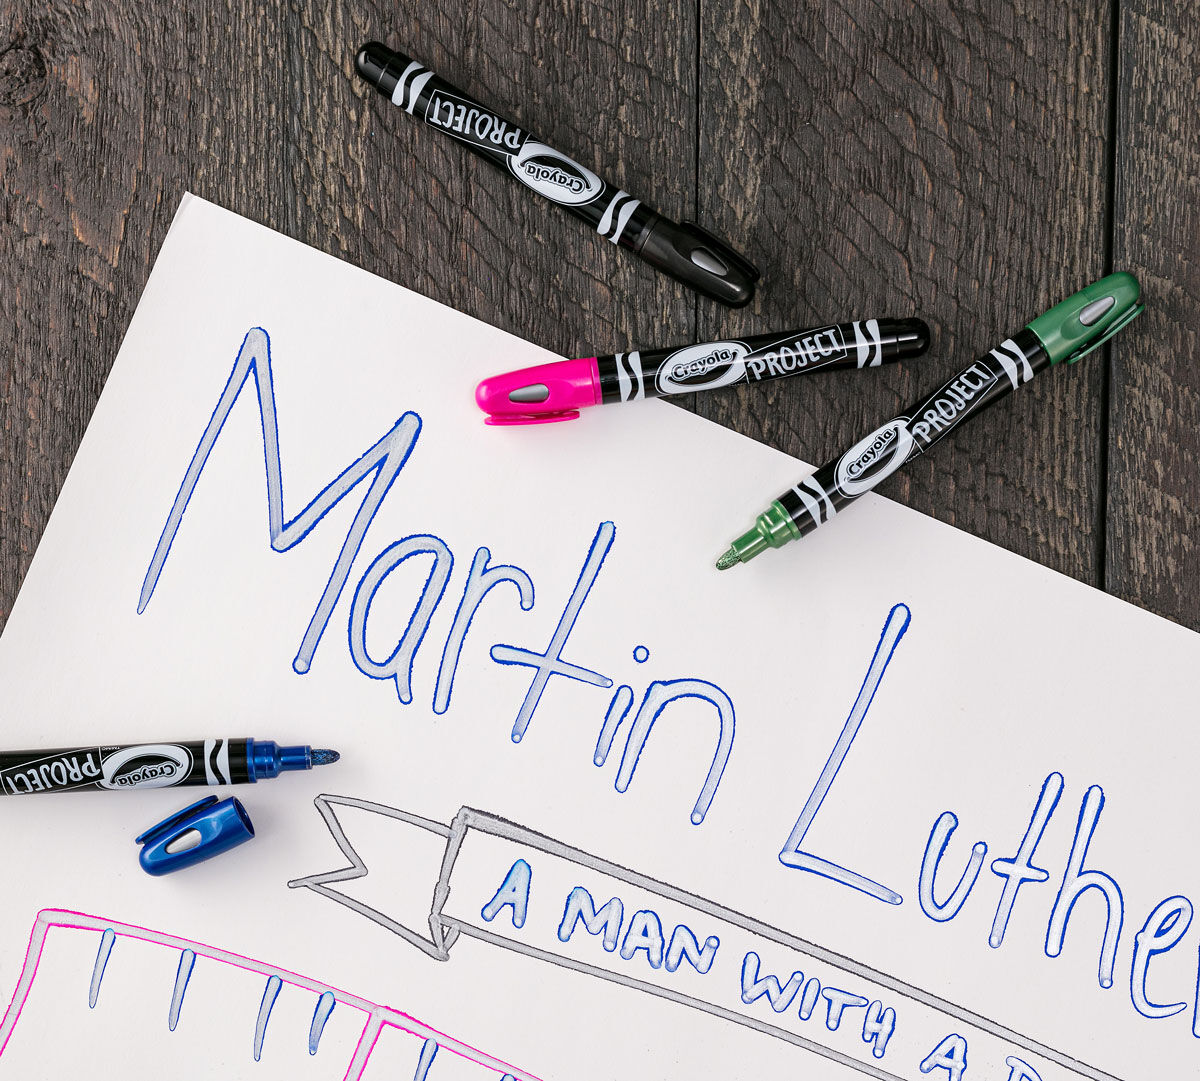 PROJECT Crayola
Crayola PROJECT
Crayola PROJECT
Martin Luther
PROJECT Crayola
A MAN WITH A